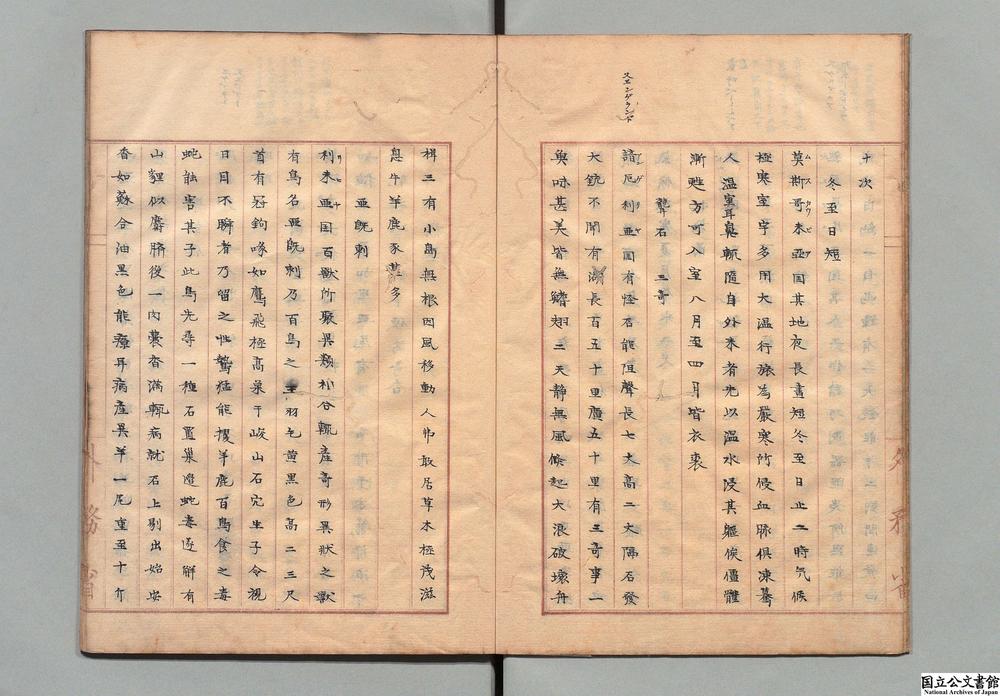 十次
冬至日短
莫斯哥未亜国其地夜長晝短冬至日止二時気候
極寒室宇多用大温行旅為嚴寒所侵血脉俱凍驀
人温室耳鼻輒隨自外来者先以温水浸其軀俟僵體
漸甦方可入室八月至四月皆衣裘
聾石 三奇
スエンゲランド
諳厄利亜国有怪石能阻聲長七丈高二丈隔石發
大銃不聞有湖長百五十里廣五十里有三奇事一
魚味甚美皆無鰭翅二天静無風倏起大浪破壊舟
楫三有小島無根因風移動人弗敢居草木極茂滋
息牛羊鹿豕甚多
亜既剌
利未亜国百獸所聚異類朴合輒産奇形異狀之獸
有鳥名亜既剌乃百鳥之王羽毛黄黒色高二三尺
首有冠鉤喙如鷹飛極高巣于峻山石穴生子令視
日目不瞬者乃留之性鷙猛能攫羊鹿百鳥食之毒
蛇能害其子此鳥先尋一種石置巣邊蛇毒遂解有
山貍似麝臍後一肉嚢香滿輒病就石上剔出始安
香如蘇合油黒色能療耳病産異羊一尾重至十斤
外務省
国立公文書館
National Archives of Japan